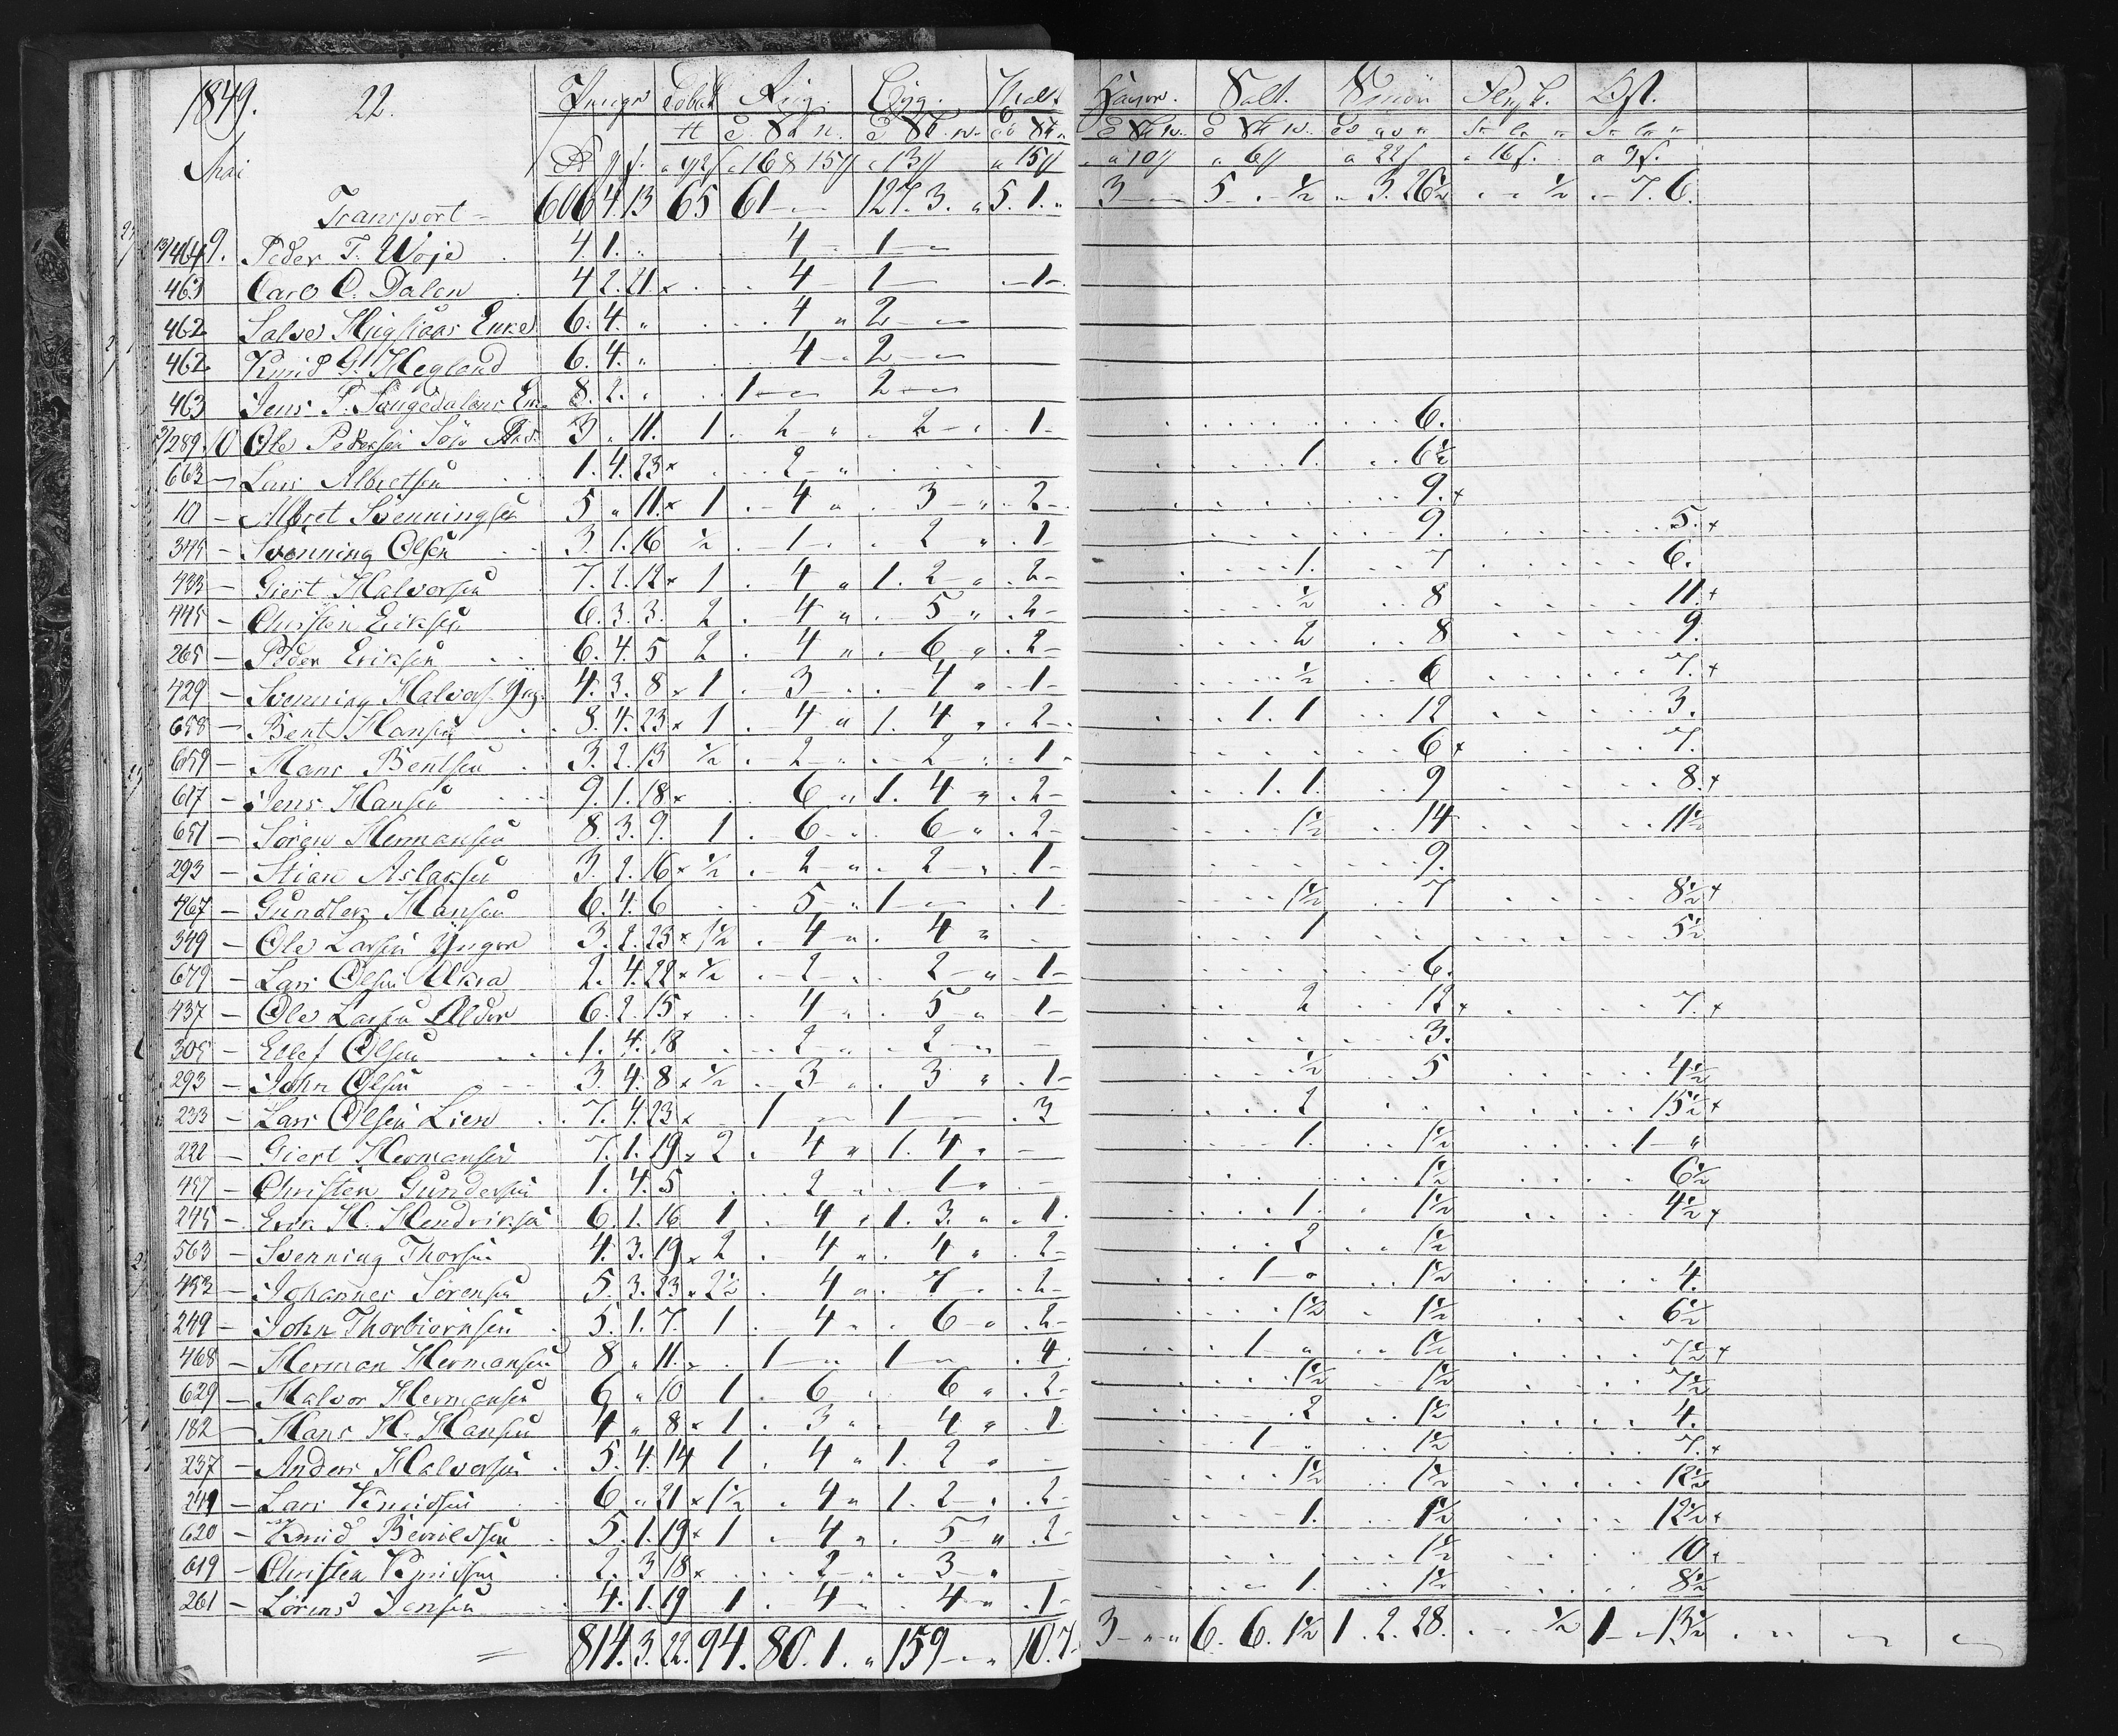 1849. 22. Penge Tobak Rug. Byg. Malt Salt. Flesk. Ost.
Mai a 13 a 15 a 10 a 6 a 22 a 16 a 9
Transport - 606 4. 13 65 61 - - 127. 3. " 5. 1. " 3 - - 5 . . ½ " 3. 26½ . . ½ . - 7. 6.
13/464 9. Peder T. Woje 4. 1. " 4 - 1 - -
463 Carl O. Dalen 4 2. 21 x 4 - 1 - - 1 -
462 Salve Enke 6. 4. " 4 " 2 - -
462 Knud G. Hegland 6. 4. " 4 - " 2 - -
463 Jens P. Songedalens En. 8. 2. " 1 - - 2 - -
289. 10 Ole Pedersen 3 " 11. 1 . 2 - " . 2 - . . 1 - 6.
663 - Lars Albretsen 1. 4. 23 x 2 - " 1. 6½
10 - Albret Svenningsen 5 " 11. x 1 . - 4 " . 3 - " . 2 - 9. x
345 - Svenning Olsen 3. 1. 16 ½ . - 1 - . . 2 " . 1 - 9. 5. x
433 - Giert Halvorsen 7. 2. 12 x 1 . - 4 " 1. 2 - " . 2 - 1. 7 6.
445 - Christen Eriksen 6. 3. 3. 2 . - 4 " . 5 " . 2 - ½ 8 11. x
265 - Peder Eriksen 6. 4. 5 2 . - 4 " . 6 " . 2 - 2 8 9.
429 - Svenning Halvors. Yng. 4. 3. 8 x 1 . - 3 - . . 4 " . 1 - ½ 6 7. x
658 - Bent Hansen 8. 4. 23 x 1 . 4 " 1. 4 " . 2 - 1. 1 12 3.
659 - Hans Bentsen 3. 2. 13 ½ . - 2 - " . - 2 - " . 1 - 6 x 7.
617 - Jens Hansen 9. 1. 18 x 6 " 1. 4 " . 2 - 1. 1. 9 8. x
651 - Søren Hermansen 8. 3. 9. 1 . - 6 - . . 6 - " . 2 - 1½ 14 11½
293 - Stian Aslaksen 3. 2. 16 x ½ . - 2 - " . - 2 - " . 1 - 9.
467 - Gunder Hansen 6. 4. 6 5 - " 1 - - . 1 - 1½ 7 8½ x
349 - Ole Larsen Yngre 3. 2. 23 x 1½ . - 4 " . 4 " 1 5½
679 - Lars Olsen Aakra 2. 4. 22 x ½ . - 2 - . . 2 - " . 1 - 6.
437 - Ole Larsen Ældre 6. 2. 15 x 4 - . . 5 " . 1 - 2 12 x 7. x
305 - Ellef Olsen 1. 4. 18 2 - . . 2 - " - 3.
293 - John Olsen 3. 4. 8 x ½ . - 3 - . . 3 " . 1 - ½ 5 4½
233 - Lars Olsen Lien 7. 4. 23 x 1 - - 1 - - . 3 2 15½ x
222 - Giert Hermansen 7. 1. 19 x 2 . 4 " 1. 4 " - 1. 1½ 1 - "
457 - Christen Gundersen 1. 4. 5 2 - . . 1 - " - 1½ 6½
245 - Erik H. Hendriksen 6. 1. 16 1 . 4 " 1. 3. " . 1. 1. 1½ 4½ x
563 - Svenning Thorsen 4. 3. 19 x 2 . 4 " . 4 " . 2 - 2 1½
453 - Johannes Sørensen 5. 3. 23 x 2½ . 4 " . 7 - . . 2 - 1 - " 1½ 4.
249 - John Thorbiørnsen 5. 1. 7. 1 . - 4 - . . 6 - " . 2 - 1½ 1½ 6½
468 - Herman Hermansen 8 " 11. x 1 - " 1 - " . 4. 1 " 1½ 7½ x
629 - Halvor Hermansen 6 " 10 1 . 6 . 6 " . 2 - 1½ 1½ 7½
182 - Hans H. Hansen 4 " 8 x 1 . 3 " . 4 " . 1. 2 1½ 4.
237 - Anders Halvorsen 5. 4. 14 1 . 4 " 1. 2 " - 1 - 1½ 7. x
249 - Lars Knudsen 6 " 21 x 1½ . 4 " 1. 2 - . . 2 - 1½ 1½ 12½
620 - Knud Beruldsen 5. 1. 19 x 1 . 4 " . 5 " . 2 - 1. 1½ 12½ x
619 - Christen Knudsen 2. 3 18 x 2 - . . 3 " - 1½ 10 x
261 - Lorens Jensen 4. 1. 19 1 . 4 - . . 4 " . 1 - 1. 1½ 8½
= 814. 3. 22. 94. 80. 1. " 159 - - " 10. 7. 3 - " - " 6. 6. 1½ 1. 2. 28. . - ½ 1 - " 13½